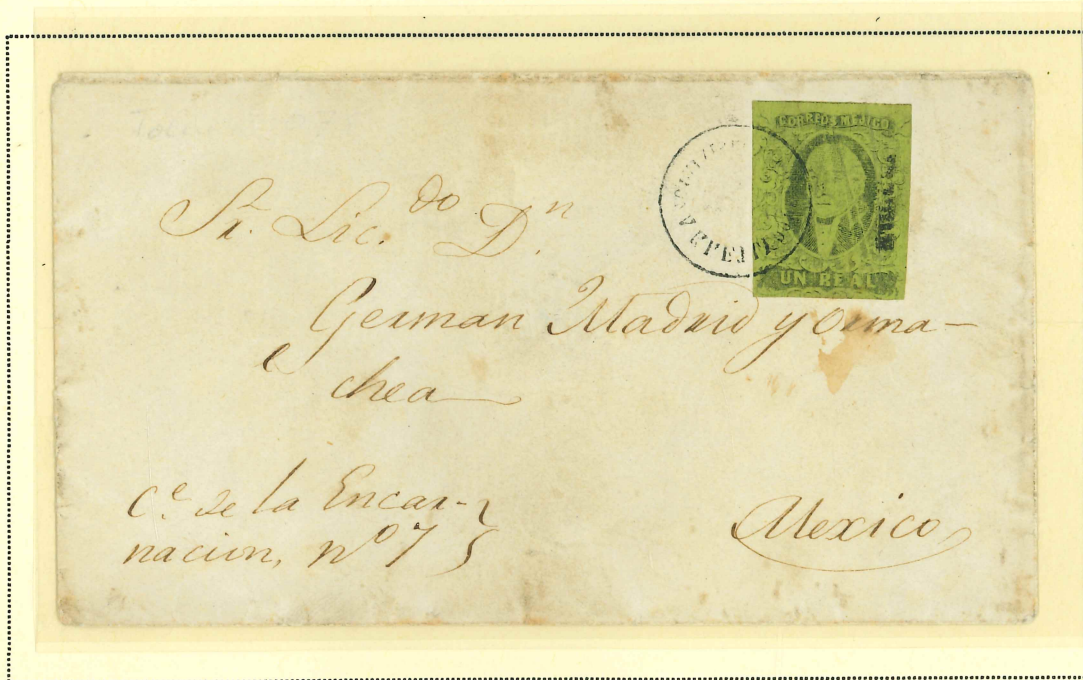 CORREOS MEJICO
UN REAL
Sr. Lic.do Dn.
German Madrid y Orma-
chea
Ce. de la Encar-
nacion, no 7
Mexico